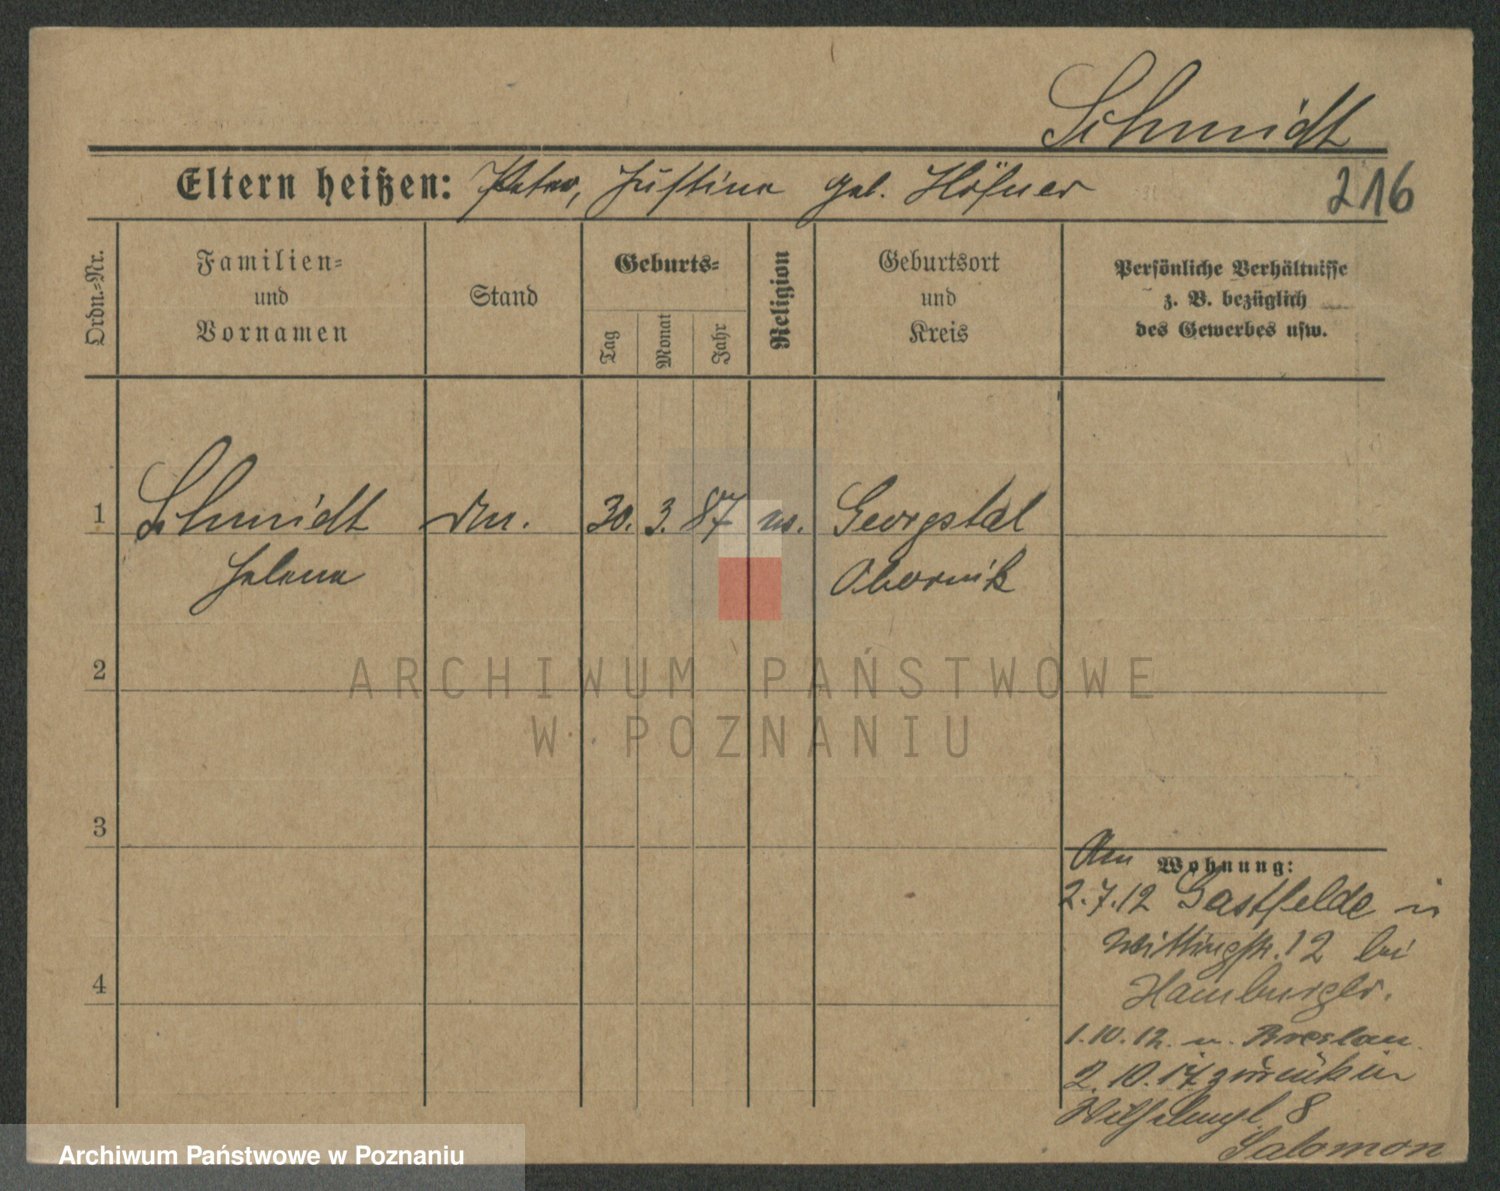 Schmidt
Eltern heißen: Peter, Justine geb. Höfner
216
Ordn.-Nr.
Familien-
und
Vornamen
Stand
Geburts-
Tag
Monat
Jahr
Religion
Geburtsort
und
Kreis
Persönliche Verhältnisse
z. B. bezüglich
des Gewerbes usw.
1 Schmidt 30. 3. 87 Georgstal
Helene Obornik
2
3
4
ARCHIWUM PAŃSTWOWE
W POZNANIU
Am Wohnung:
2.7.12 in
Wittingstr. 12 bei
Hamburger.
1.10.12. n. Breslau
2.10.17 zurück in
Wilhelmpl. 8
Salomon
Archiwum Państwowe w Poznaniu